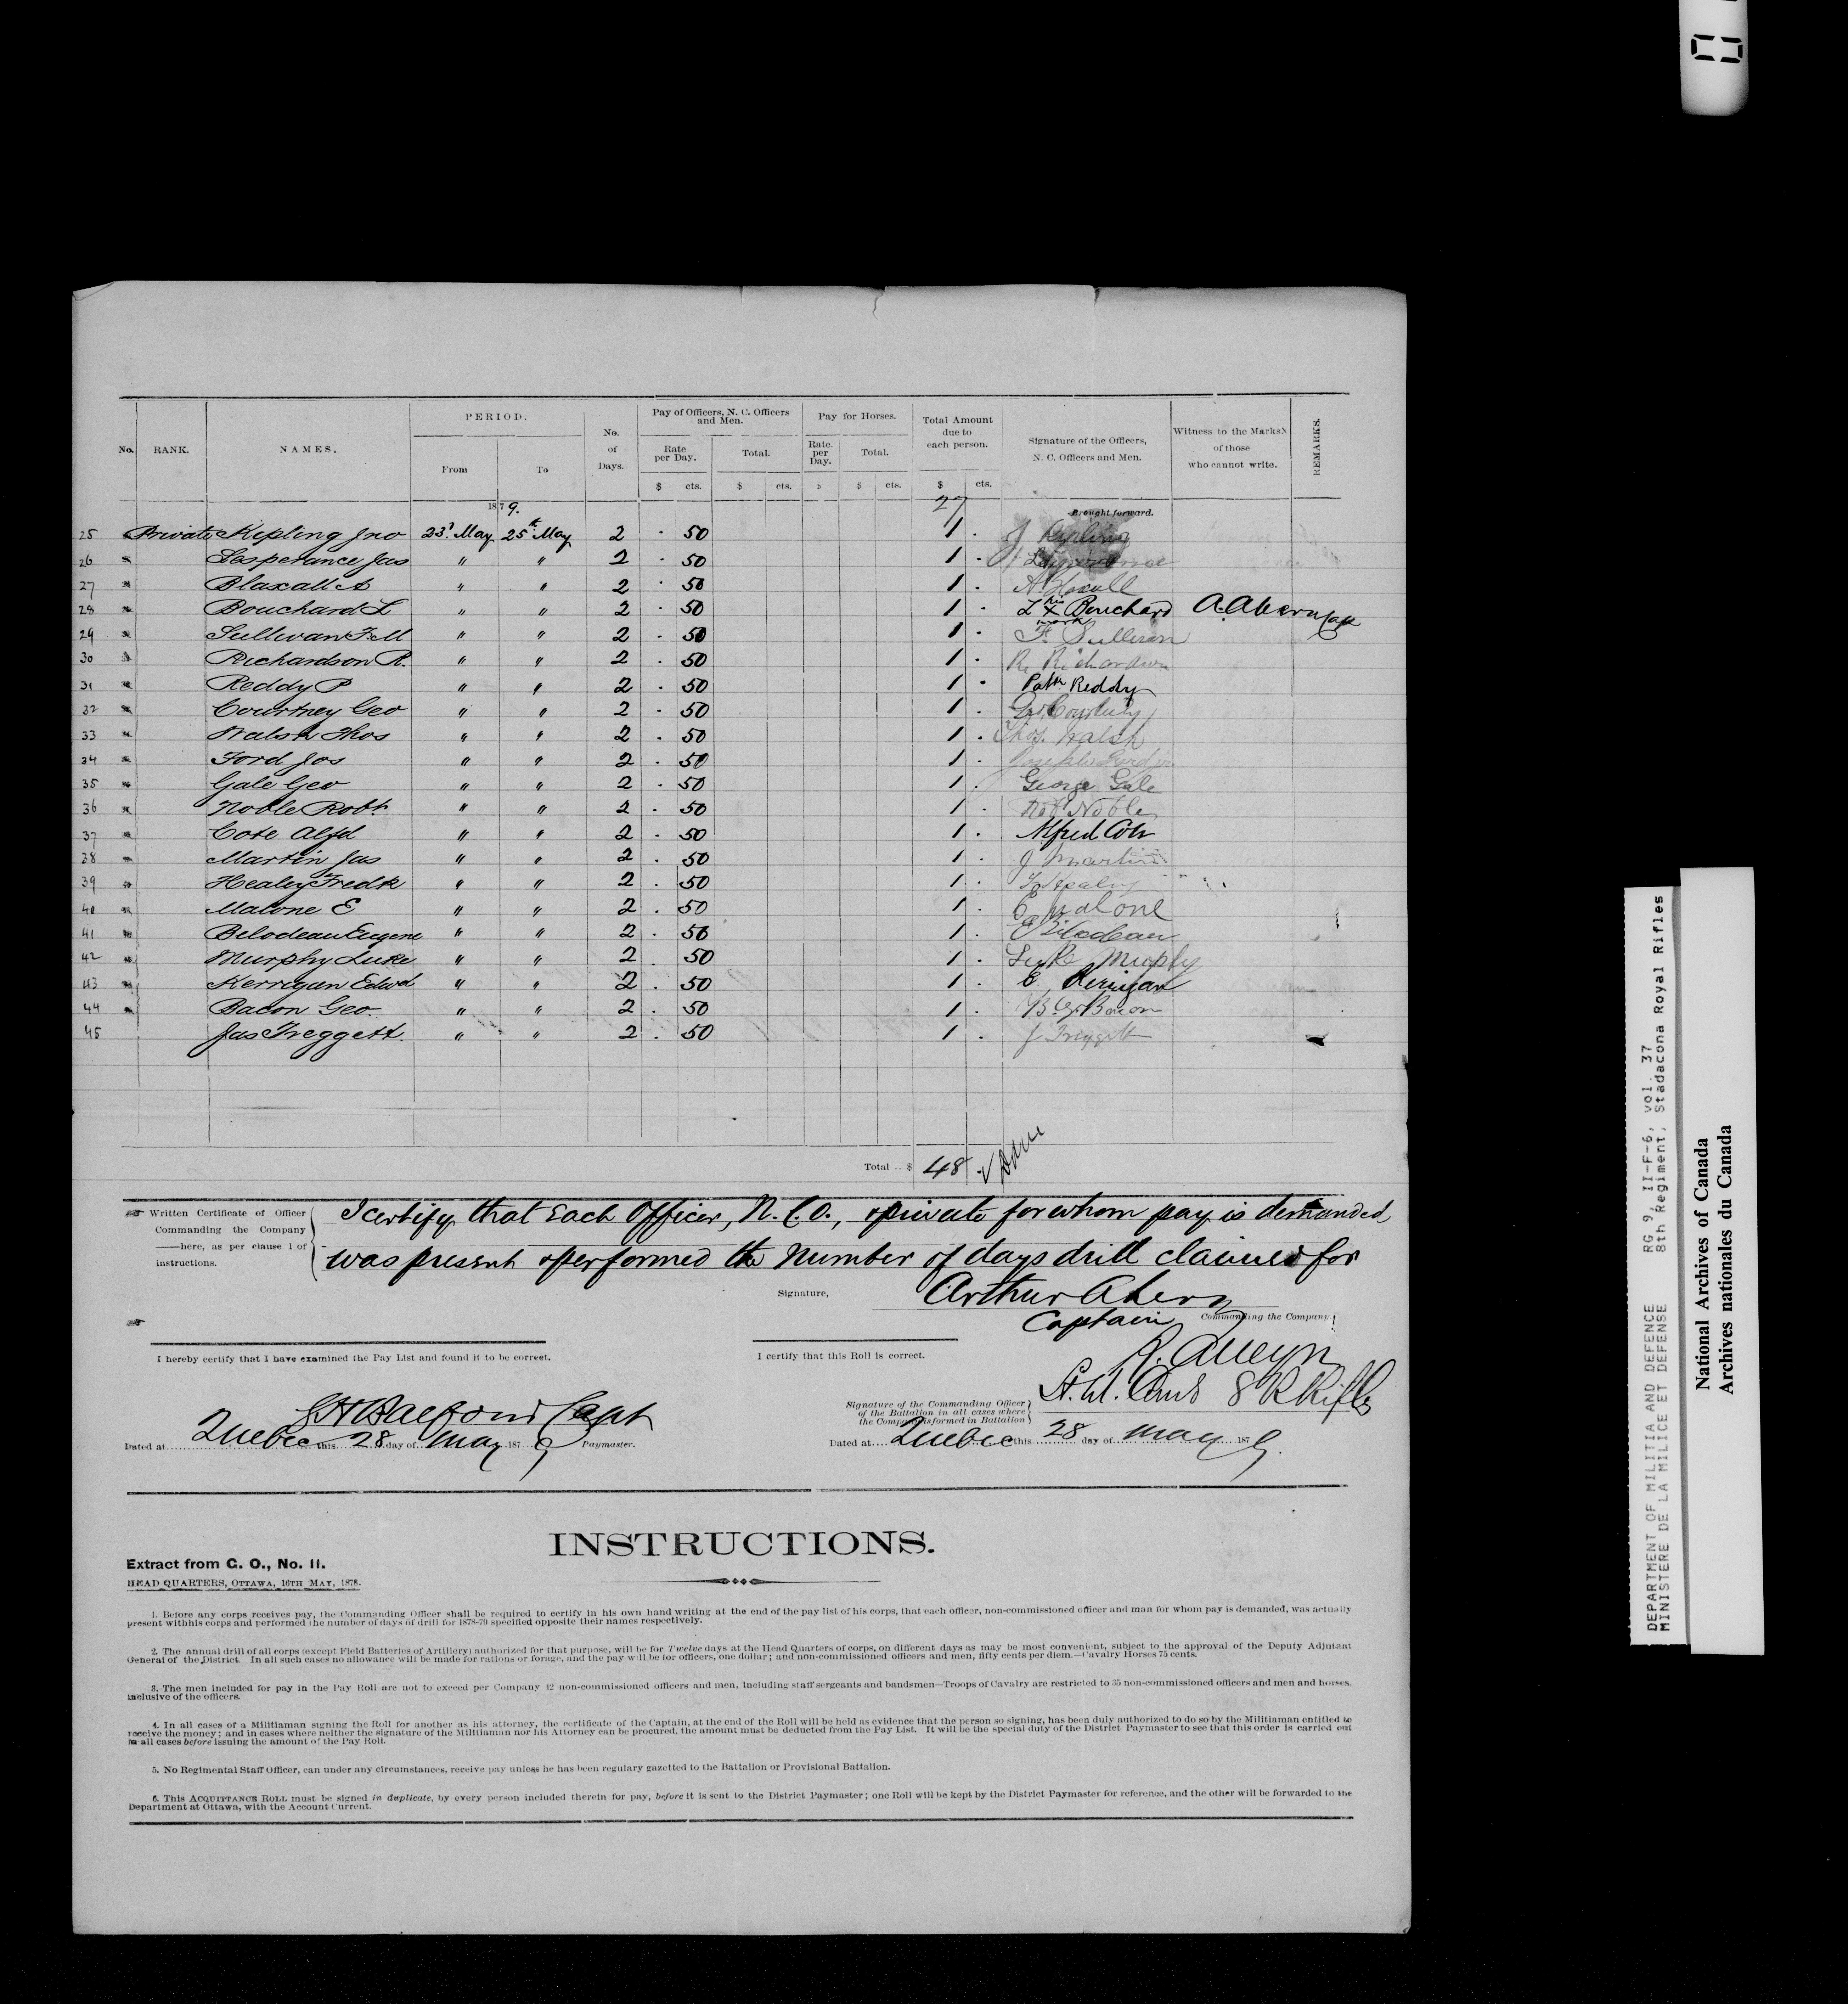 No. RANK. NAMES. PERIOD. No. of Days. Pay of Officers, N. C. Officers and Men. Pay for Horses. Total Amount due to each person. Signature of the Officers, N. C. Officers and Men. Witness to the Marks of those who cannot write. REMARKS.
From To Rate per Day. Total. Rate. per Day. Total.
$ cts. $ cts. $ $ cts. $ cts.
1879. 27 Brought forward.
25 Private Kipling Jno 23d May 25th May 2 . 50 1 . J Kipling
26 " Lesperance Jas " " 2 . 50 1 .
27 " Blaxall A " " 2 . 50 1 . A Blaxall
28 " Bouchard L " " 2 . 50 1 . L his X mark Bouchard A. Ahern Cap
29 " Sullivan F. M " " 2 . 50 1 . F. Sullivan
30 " Richardson R. " " 2 . 50 1 . R. Richardson
31 " Reddy P " " 2 . 50 1 . Patk Reddy
32 " Courtney Geo " " 2 . 50 1 . Geo Courtney
33 " Walsh Thos " " 2 . 50 1 . Thos. Walsh
34 " Ford Jos " " 2 . 50 1 . Joseph Ford jr
35 " Gale Geo " " 2 . 50 1 . George Gale
36 " Noble Robt " " 2 . 50 1 . Robt Noble
37 " Cote Alfd " " 2 . 50 1 . Alfred Cote
38 " Martin Jas " " 2 . 50 1 . J Martin
39 " Healey Fredk " " 2 . 50 1 . F Healey
40 " Malone E " " 2 . 50 1 . E Malone
41 " Belodeau Eugene " " 2 . 50 1 . E Bilodeau
42 " Murphy Luke " " 2 . 50 1 . Luke Murphy
43 " Kerrigan Edwd " " 2 . 50 1 . E Kerrigan
44 " Bacon Geo " " 2 . 50 1 . Bacon
45 Jas Treggett. " " 2 . 50 1 . J Treggett
Total .. $ 48
Written Certificate of Officer Commanding the Company here, as per clause 1 of instructions.
I certify that Each Officer, N. C. O., & private for whom pay is demanded
was present & performed the Number of days drill claimed for
Signature, Arthur Ahern
Captain Commanding the Company.
I hereby certify that I have examined the Pay List and found it to be correct.
I certify that this Roll is correct.
R. Alleyn
Lt. Col. Comd 8 R Rifles
Signature of the Commanding Officer of the Battalion in all cases where the Company is formed in Battalion
Capt
Dated at Quebec this 28 day of May 1879 Paymaster.
Dated at Quebec this 28 day of May 1879.
INSTRUCTIONS.
Extract from G. O., No. 11.
HEAD QUARTERS, OTTAWA, 10TH MAY, 1878.
1. Before any corps receives pay, the Commanding Officer shall be required to certify in his own hand writing at the end of the pay list of his corps, that each officer, non-commissioned officer and man for whom pay is demanded, was actually
present withhis corps and performed the number of days of drill for 1878-79 specified opposite their names respectively.
2. The annual drill of all corps (except Field Batteries of Artillery) authorized for that purpose, will be for Twelve days at the Head Quarters of corps, on different days as may be most convenient, subject to the approval of the Deputy Adjutant
General of the District. In all such cases no allowance will be made for rations or forage, and the pay will be for officers, one dollar; and non-commissioned officers and men, fifty cents per diem.—Cavalry Horses 75 cents.
3. The men included for pay in the Pay Roll are not to exceed per Company 42 non-commissioned officers and men, including staff sergeants and bandsmen—Troops of Cavalry are restricted to 35 non-commissioned officers and men and horses,
inclusive of the officers.
4. In all cases of a Militiaman signing the Roll for another as his attorney, the certificate of the Captain, at the end of the Roll will be held as evidence that the person so signing, has been duly authorized to do so by the Militiaman entitled to
receive the money; and in cases where neither the signature of the Militiaman nor his Attorney can be procured, the amount must be deducted from the Pay List. It will be the special duty of the District Paymaster to see that this order is carried out
in all cases before issuing the amount of the Pay Roll.
5. No Regimental Staff Officer, can under any circumstances, receive pay unless he has been regulary gazetted to the Battalion or Provisional Battalion.
6. This ACQUITTANCE ROLL must be signed in duplicate, by every person included therein for pay, before it is sent to the District Paymaster; one Roll will be kept by the District Paymaster for reference, and the other will be forwarded to the
Department at Ottawa, with the Account Current.
DEPARTMENT OF MILITIA AND DEFENCE RG 9, II-F-6, vol. 37
MINISTERE DE LA MILICE ET DEFENSE 8th Regiment, Stadacona Royal Rifles
National Archives of Canada
Archives nationales du Canada